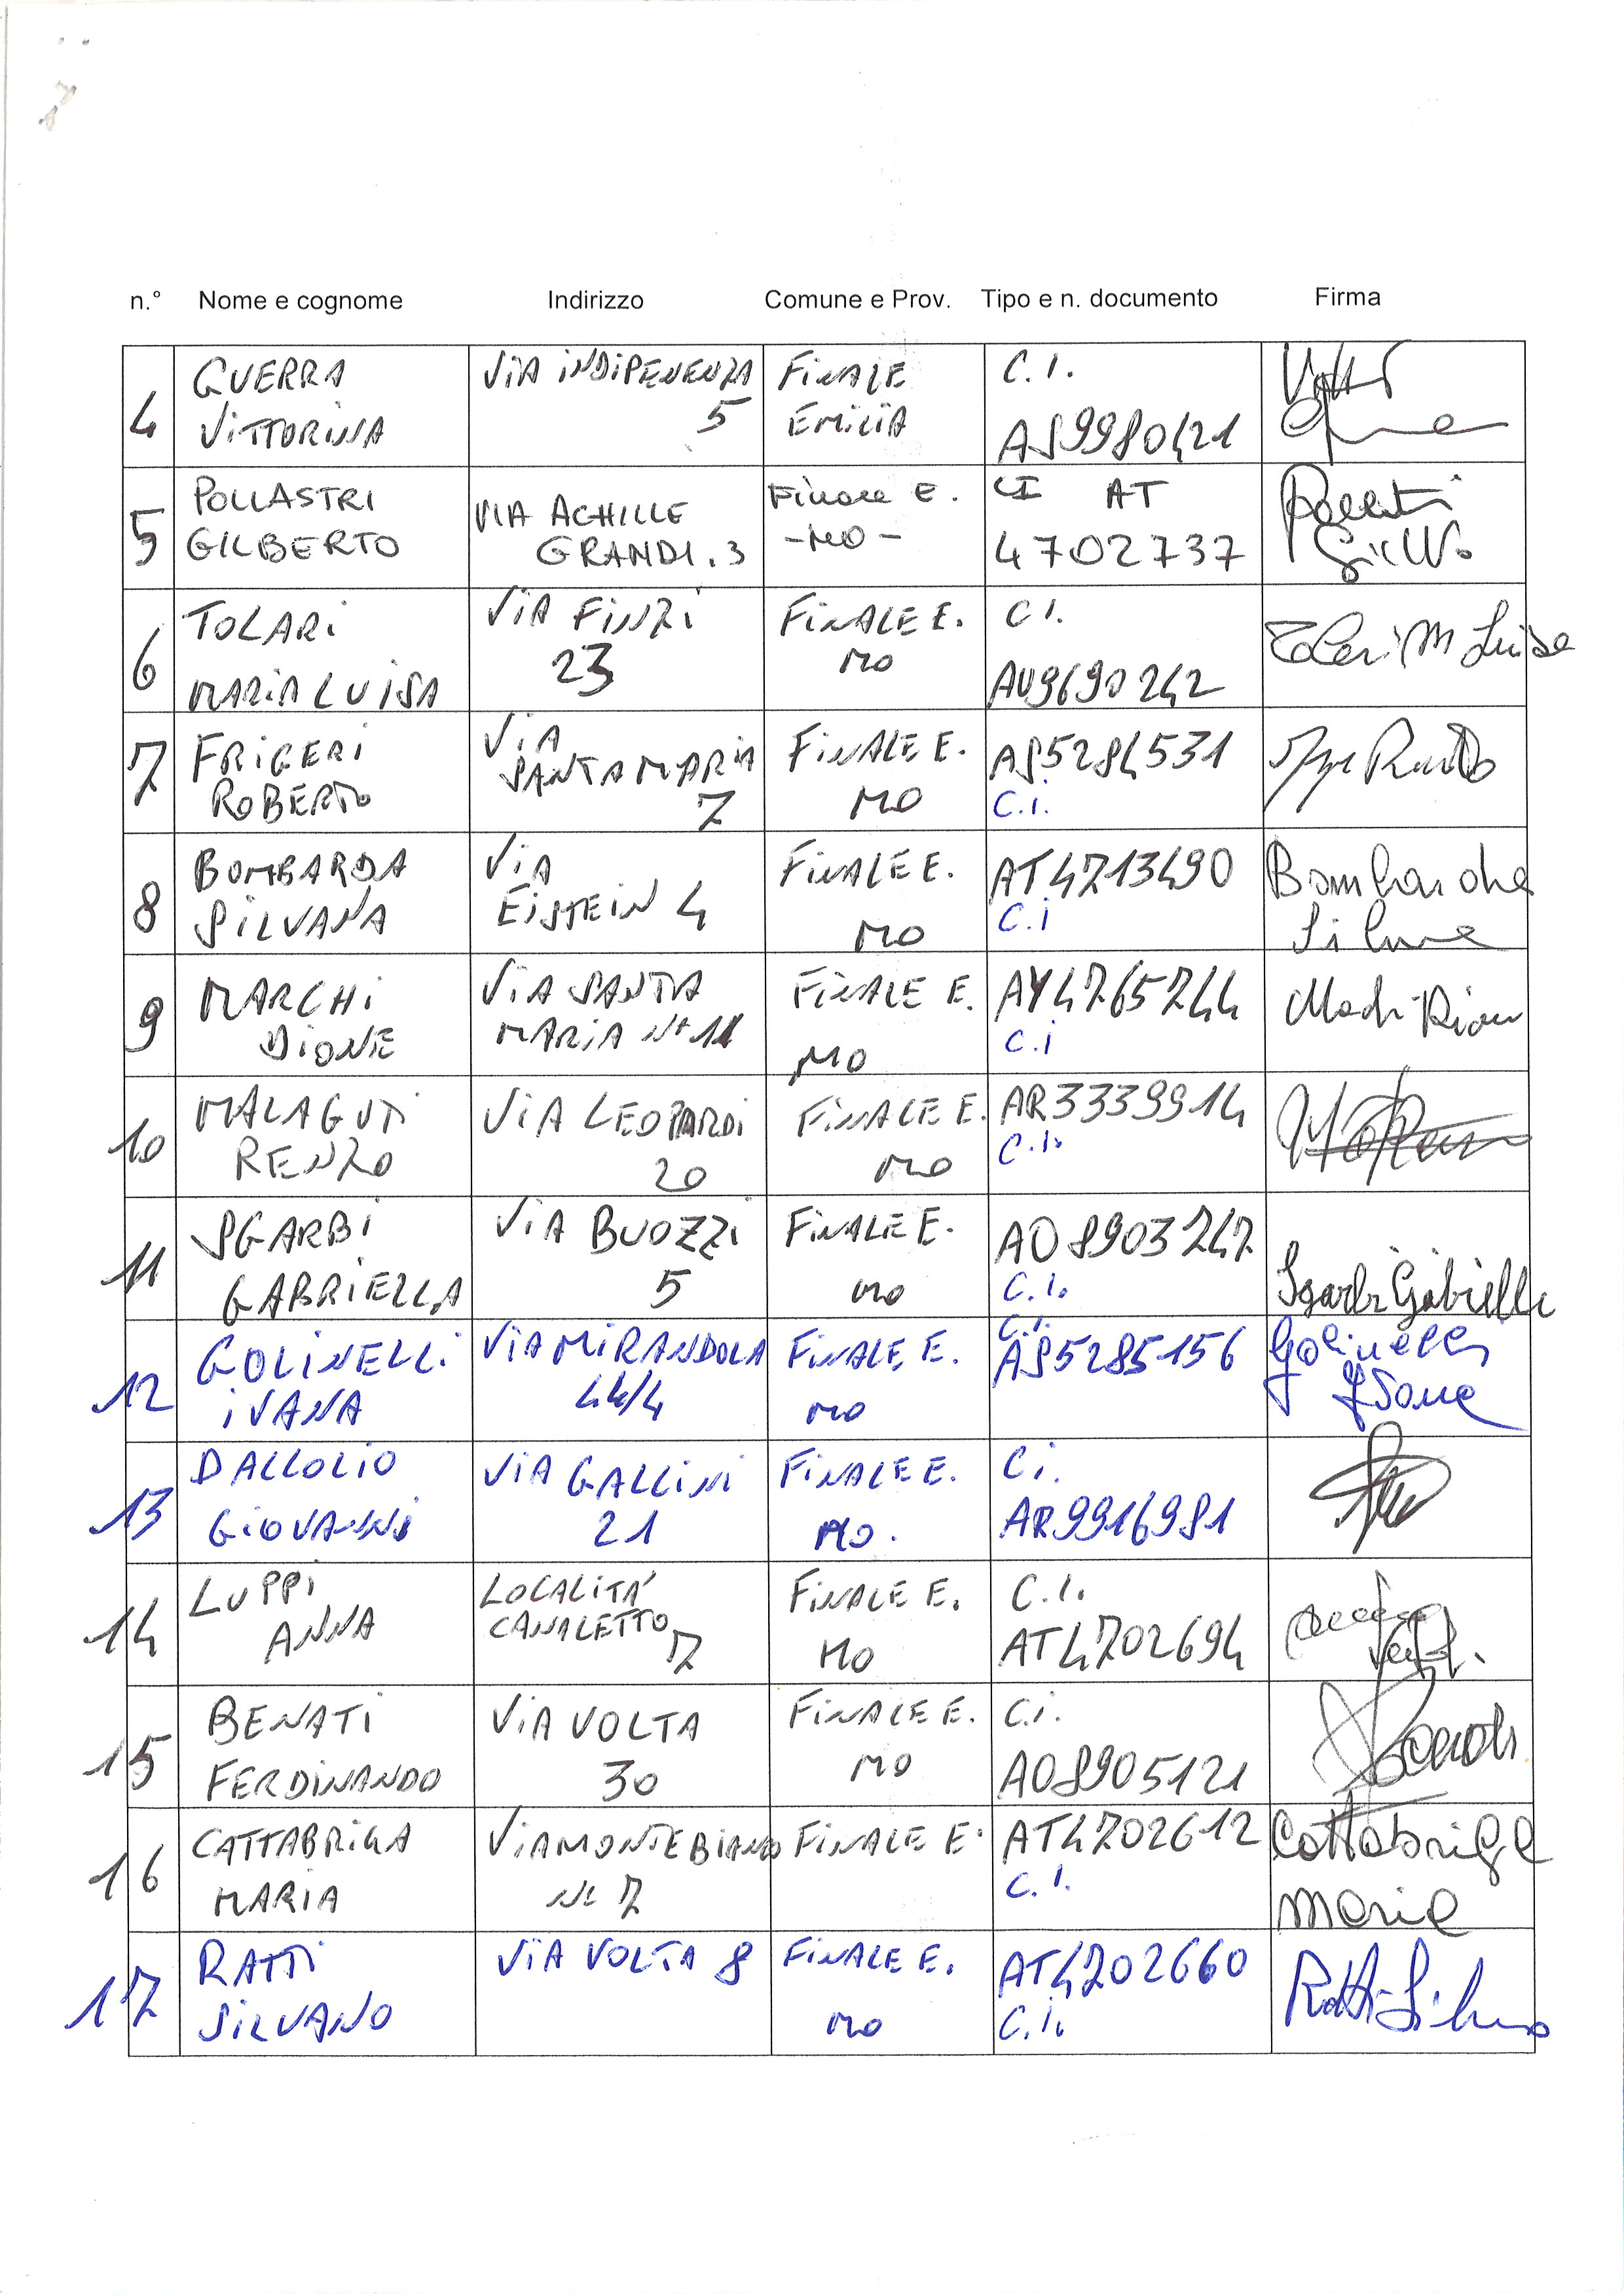 n.° Nome e cognome Indirizzo Comune e Prov. Tipo e n. documento Firma
4 GUERRA VITTORINA ViA iNDiPENENZA 5 FiNALE EMiLiA C.I. AS9980421
5 POLLASTRI GILBERTO VIA ACHILLE GRANDI. 3 Finale E. -MO- CI AT 4702737
6 TOLARi MARiA LUiSA ViA FiNZi 23 FiNALE E. MO CI. AU9690242 M Luisa
7 FRiGERi ROBERTO ViA SANTA MARiA 7 FiNALE E. MO AS5284531 C.i.
8 BOMBARDA SiLVANA ViA EiSTEiN 4 FiNALE E. MO AT4713490 C.i Bombarda Silvana
9 MARCHi DiONE ViA SANTA MARiA N° 11 FiNALE E. MO AY4765744 C.i
10 MALAGUTi RENZO ViA LEOPARDi 20 FiNALE E. MO AR3339914 C.I.
11 SGARBi GABRiELLA ViA BUOZZi 5 FiNALE E. MO AO8903747 C.I. Sgarbi Gabriella
12 GOLiNELLi iVANA ViA MiRANDOLA 44/4 FiNALE E. MO C.i. AS5285156 Golinelli Ivana
13 DALLOLiO GiOVANNi ViA GALLiNi 21 FiNALE E. MO. Ci. AR9916981
14 LUPPi ANNA LOCALiTA' CANALETTO 7 FiNALE E. MO C.I. AT4702694
15 BENATi FERDiNANDO ViA VOLTA 30 FiNALE E. MO C.i. AO8905121
16 CATTABRiGA MARiA ViA MONTE BiANCO N° 7 FiNALE E. AT4702612 C.I. Cattabriga Maria
17 RATTi SiLVANO ViA VOLTA 8 FiNALE E. MO AT4702660 C.I. Ratti Silvano